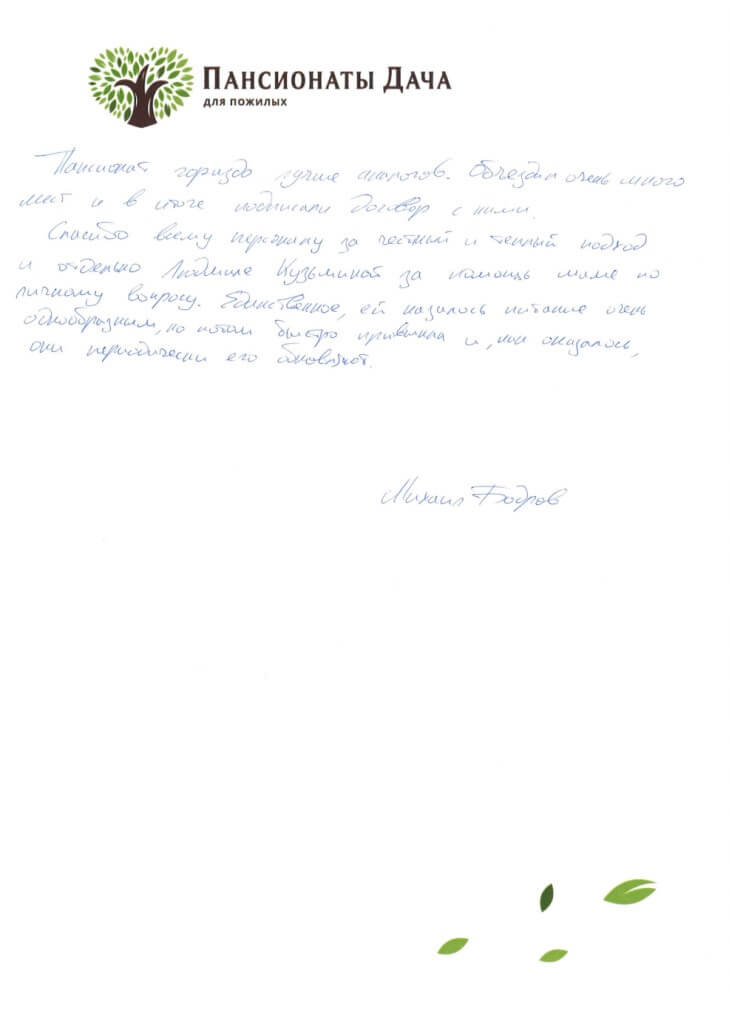 ПАНСИОНАТЫ ДАЧА
ДЛЯ ПОЖИЛЫХ
Пансионат гораздо лучше аналогов. Объездили очень много
мест и в итоге подписали договор с ними.
Спасибо всему персоналу за честный и теплый подход
и отдельно Людмиле Кузьминой за помощь маме по
личному вопросу. Единственное, ей казалось питание очень
однообразным, но потом быстро привыкла и, как оказалось,
они периодически его обновляют.
Михаил Бодров